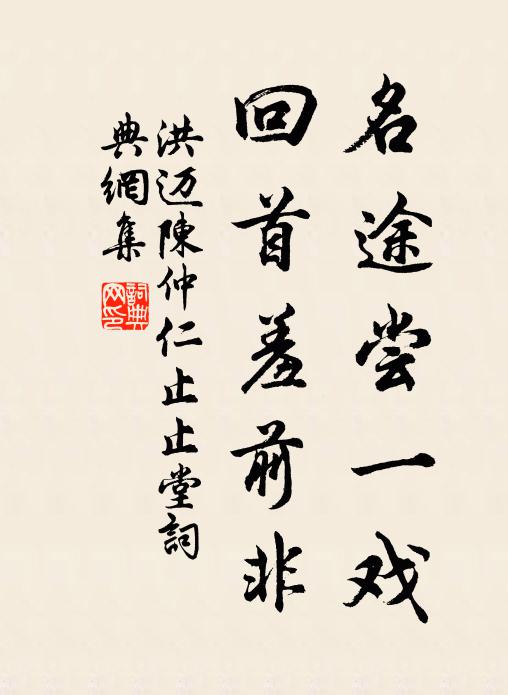 名途尝一戏
回首羞前非
洪迈陳仲仁止止堂詞
典網集
詞典网印